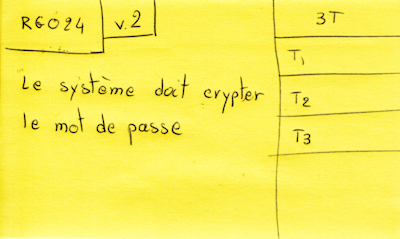 RG024
v.2
Le système doit crypter
le mot de passe
3T
T1
T2
T3